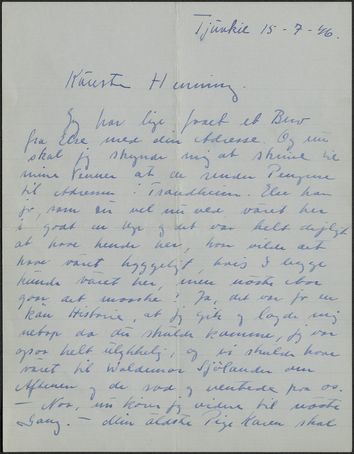 Tjürkil 15-7-46.
Käreste Henning.
Jeg har lige faaet et Brev
fra Else med din Adresse. Og nu
skal jeg skynde mig at skrive til
mine Venner at de sender Pengene
til Adressen i Trondheim. Else har
jo, som du vel nu ved været her
i godt en Uge og det var helt dejligt
at have hende her, hvor vilde det
have været hyggeligt, hvis I begge
kunde været her, men næste Aar
gaar det maaske! Ja, det var jo en
Historie, at jeg gik og lagde mig
netop da du skulde komme, jeg var
ogsaa helt ulykkelig, og vi skulde have
været til Waldemar Sjölander om
Aftenen og de sad og ventede paa os.
- Naa, nu kører jeg videre til næste
Gang. - Min ældste Pige Karen skal